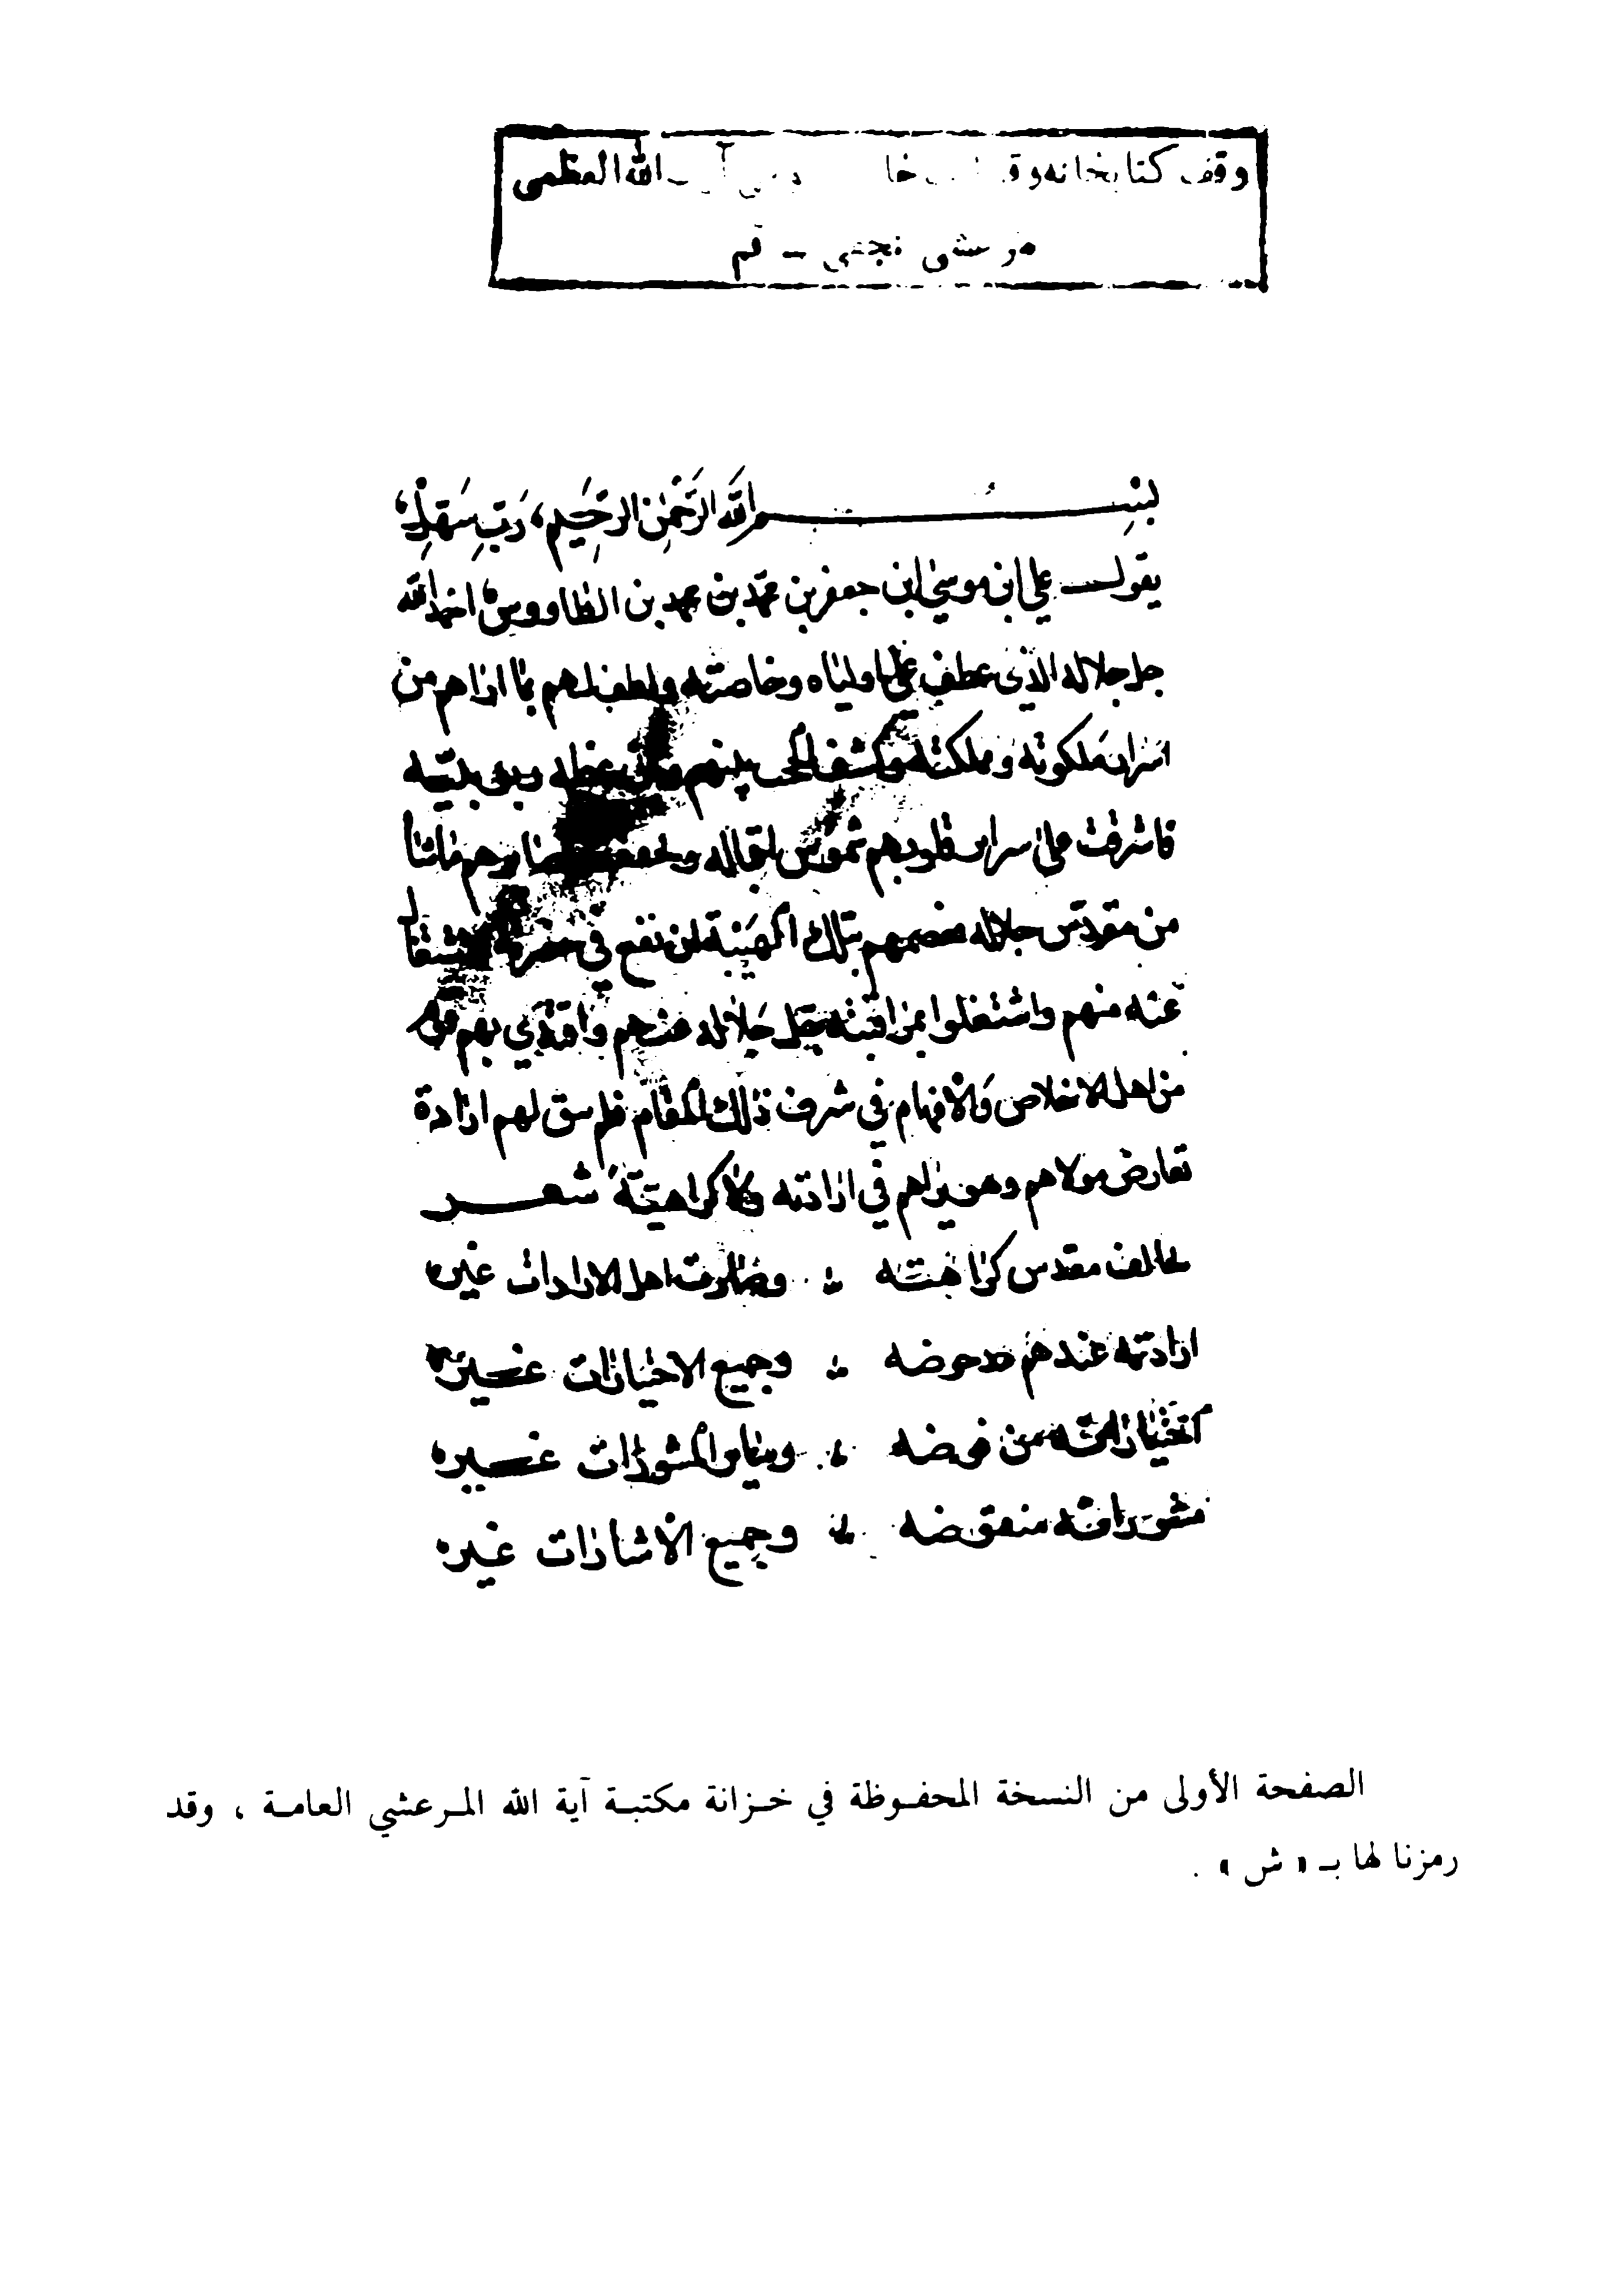 وقف كتابخانه و الله العظمى
مرعشى نجفى - قم
بسم الله الرحمن الرحيم، رب سهل
يقول علي ابن موسى ابن جعفر بن محمد بن محمد بن الطاووس احمد الله
جل جلاله الذي عطف على اولياه وخاصته ولطف لهم بما اراهم من
اسرار ملكوته ومملكته وكشف الحجب بينهم
فاشرقت على سراير قلوبهم شموس اقباله
من مقدس جلاله فعصمهم بتلك الهيبة ان تقع في
عنه منهم واشتغلوا بمراقبته جل جلاله عنهم واقتدي بهم
من اهل الاخلاص والافهام في شرف ذلك المقام فلم يبق لهم ارادة
تعارض مولاهم وهو يراهم في ارادته ولا كراهية شعر
تخالف مقدس كراهته ∴ وصارت اهل الارادات غير
ارادته عندهم مدحوضه ∴ وجميع الاختيارات غيره
اختياراته مرفوضه ∴ وساير المشورات غيره
مشوراته منقوضه ∴ وجميع الاشارات غيره
الصفحة الأولى من النسخة المحفوظة في خزانة مكتبة آية الله المرعشي العامة ، وقد
رمزنا لها بـ « ش » .